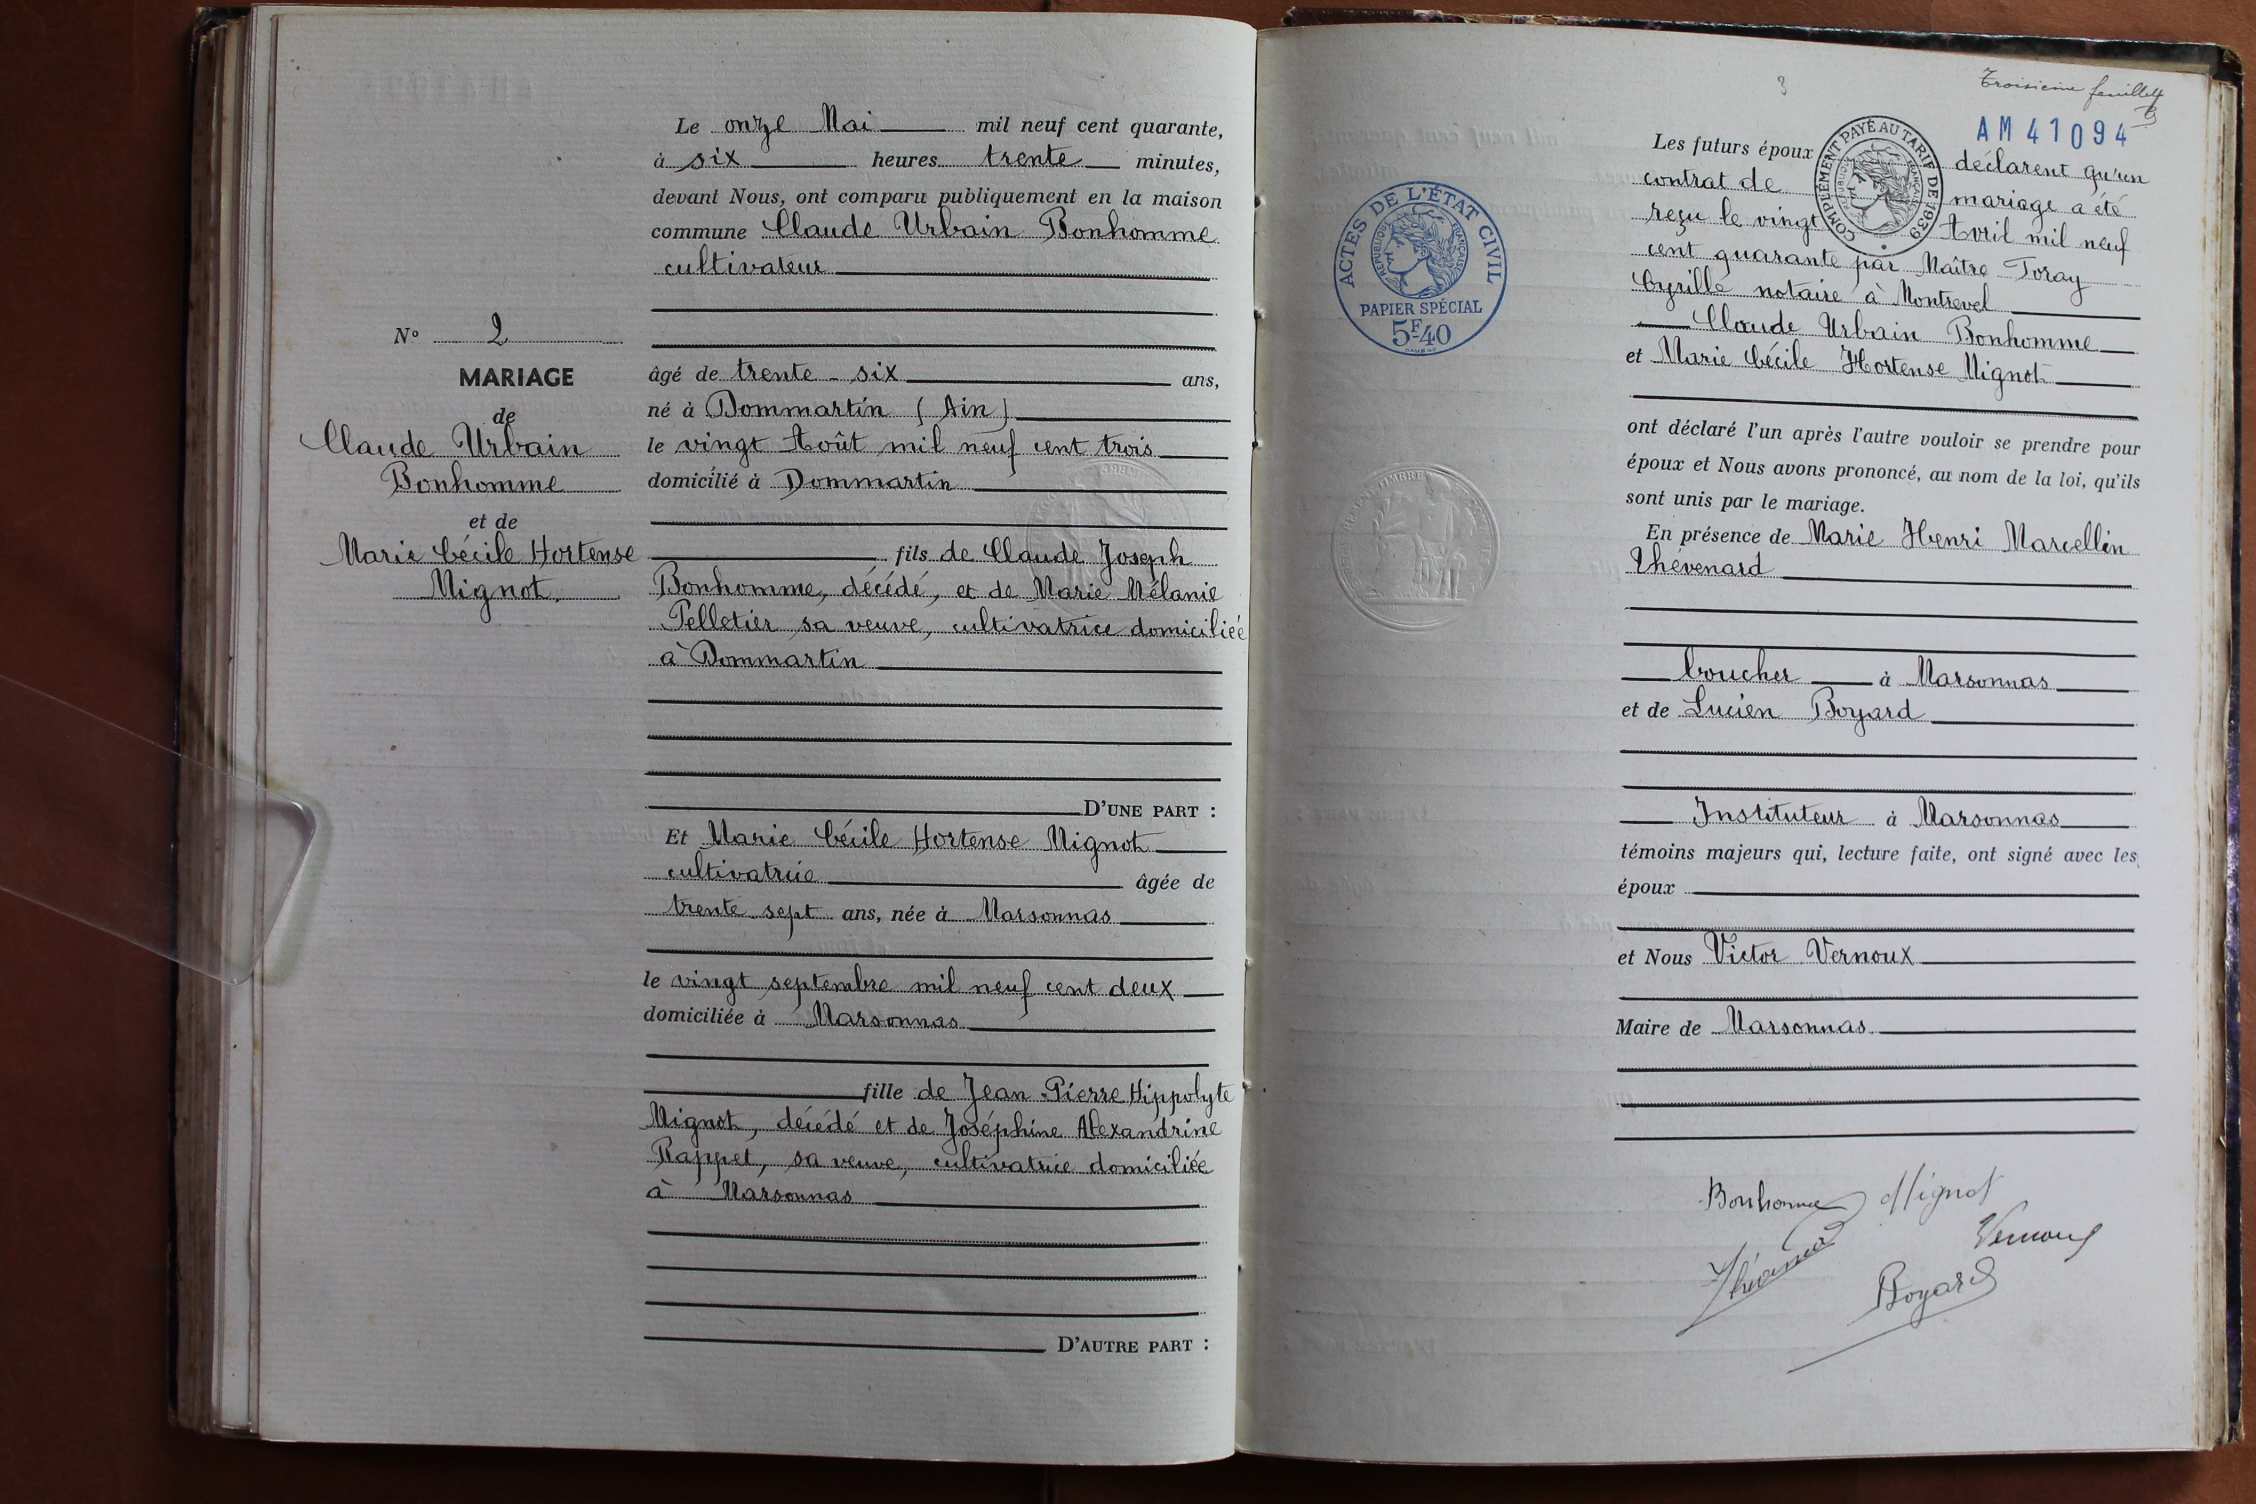 Le onze Mai mil neuf cent quarante,
à six heures trente minutes,
devant Nous, ont comparu publiquement en la maison
commune Claude Urbain Bonhomme
cultivateur
N° 2
MARIAGE
de
Claude Urbain
Bonhomme
et de
Marie Cécile Hortense
Mignot.
âgé de trente-six ans,
né à Dommartin (Ain)
le vingt Août mil neuf cent trois
domicilié à Dommartin
fils de Claude Joseph
Bonhomme, décédé, et de Marie Mélanie
Pelletier sa veuve, cultivatrice domiciliée
à Dommartin
D'UNE PART :
Et Marie Cécile Hortense Mignot
cultivatrice âgée de
trente sept ans, née à Marsonnas
le vingt septembre mil neuf cent deux
domiciliée à Marsonnas
fille de Jean-Pierre Hippolyte
Mignot, décédé et de Joséphine Alexandrine
Rappet, sa veuve, cultivatrice domiciliée
à Marsonnas
D'AUTRE PART :
3
Troisième feuillet
AM 41094
COMPLÉMENT PAYÉ AU TARIF DE 1939
RÉPUBLIQUE FRANÇAISE
ACTES DE L'ÉTAT CIVIL
RÉPUBLIQUE FRANÇAISE
PAPIER SPÉCIAL
5F40
Les futurs époux déclarent qu'un
contrat de mariage a été
reçu le vingt Avril mil neuf
cent quarante par Maître Toray
Cyrille notaire à Montrevel
Claude Urbain Bonhomme
et Marie Cécile Hortense Mignot
ont déclaré l'un après l'autre vouloir se prendre pour
époux et Nous avons prononcé, au nom de la loi, qu'ils
sont unis par le mariage.
En présence de Marie Henri Marcellin
Thévenard
boucher à Marsonnas
et de Lucien Boyard
Instituteur à Marsonnas
témoins majeurs qui, lecture faite, ont signé avec les
époux
et Nous Victor Vernoux
Maire de Marsonnas
Bonhomme Mignot
Thévenard Vernoux
Boyard